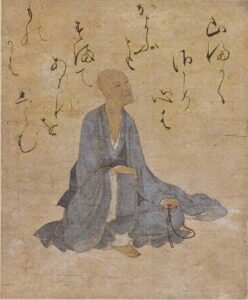 山ふかく
さこそ
心は
かよふ
とも
すまて
あはれを
しらむ